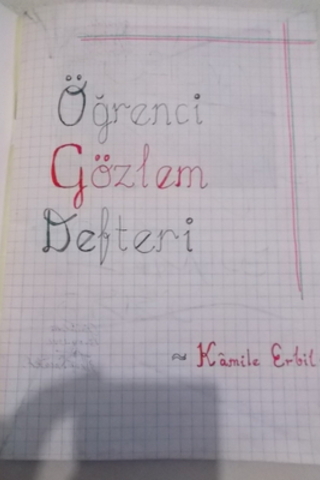 Öğrenci
Gözlem
Defteri
~ Kâmile Erbil